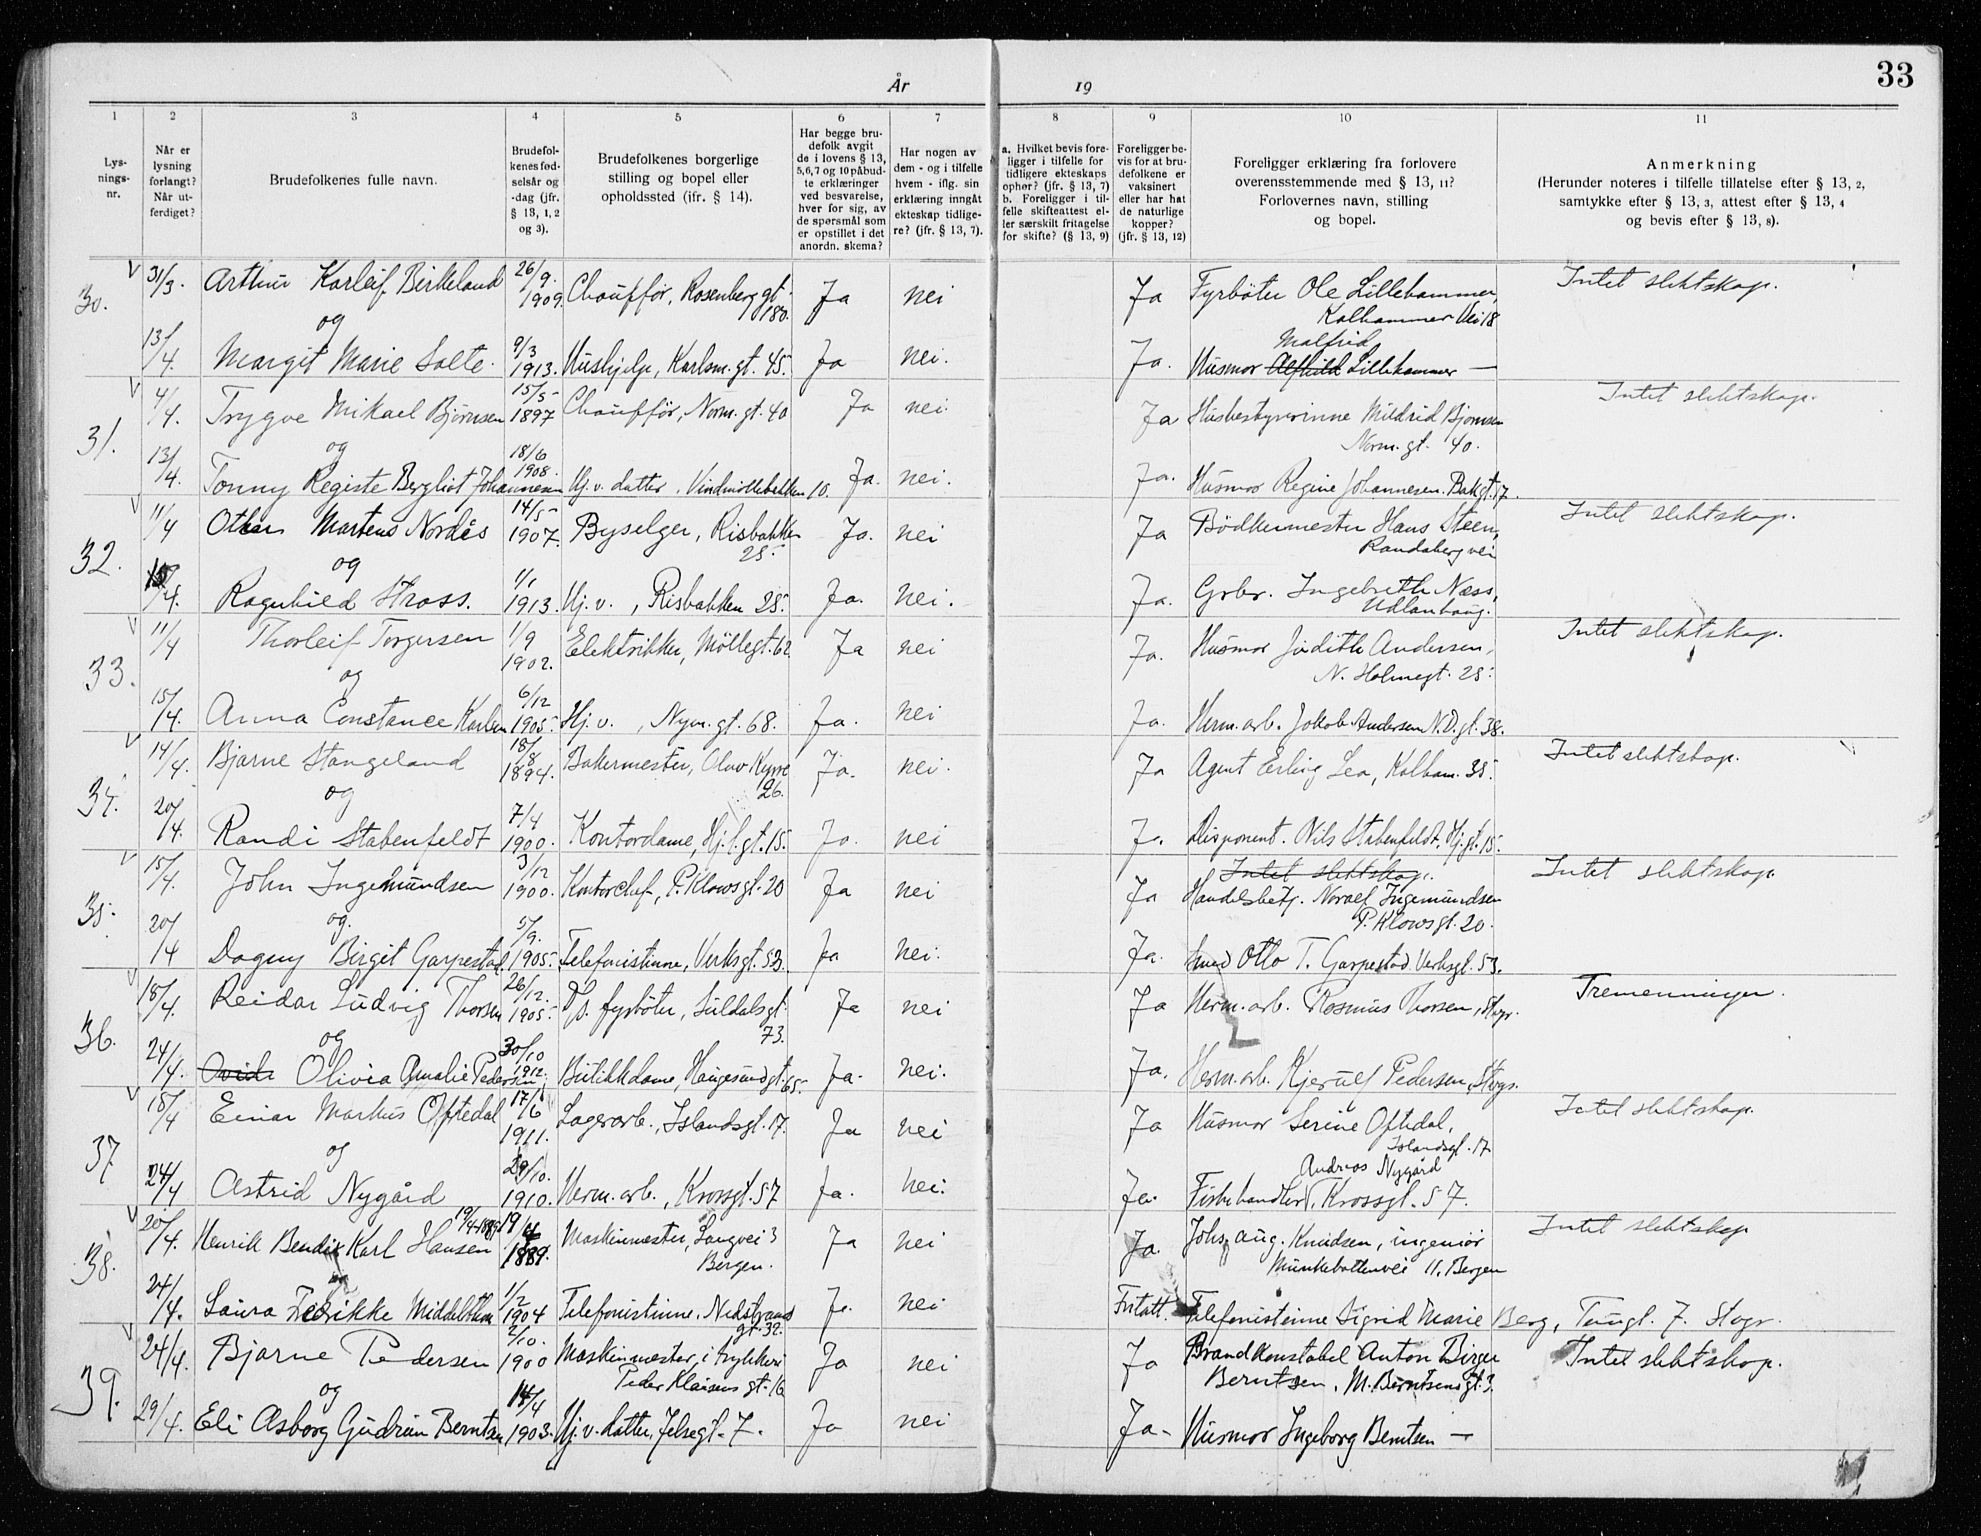 År 19 33
1 2 3 4 5 6 7 8 9 10 11
Lys-
nings-
nr.
Når er
lysning
forlangt?
Når ut-
ferdiget?
Brudefolkenes fulle navn.
Brudefol-
kenes fød-
selsår og
-dag (jfr.
§ 13, 1, 2
og 3).
Brudefolkenes borgerlige
stilling og bopel eller
opholdssted (ifr. § 14).
Har begge bru-
defolk avgit
de i lovens § 13,
5,6,7 og 10 påbud-
te erklæringer
ved besvarelse,
hver for sig, av
de spørsmål som
er opstillet i det
anordn. skema?
Har nogen av
dem - og i tilfelle
hvem - iflg. sin
erklæring inngått
ekteskap tidlige-
re? (jfr. § 13, 7).
a. Hvilket bevis fore-
ligger i tilfelle for
tidligere ekteskaps
ophør? (jfr. § 13, 7)
b. Foreligger i til-
felle skifteattest el-
ler særskilt fritagelse
for skifte? (§ 13, 9)
Foreligger be-
vis for at bru-
defolkene er
vaksinert
eller har hat
de naturlige
kopper?
(jfr. § 13, 12)
Foreligger erklæring fra forlovere
overensstemmende med § 13, 11?
Forlovernes navn, stilling
og bopel.
Anmerkning
(Herunder noteres i tilfelle tillatelse efter § 13, 2,
samtykke efter § 13, 3, attest efter § 13, 4
og bevis efter § 13, 8).
30. 31/3. Arthur Karleif Birkeland 26/9. 1909. Chauffør, Rosenberggt. 180. Ja nei Ja Fyrbøter Ole Lillehammer, Intet slektskap.
Kalhammer Vei 18
og
Malfrid
13/4. Margit Marie Salte. 9/3 1913. Hushjelp, Karlsm. gt. 45. Ja nei. Ja. Husmor Alfhild Lillehammer —
31. 4/4. Trygve Mikael Bjørnsen 15/5 1897 Chauffør, Norm. gt. 40 Ja nei. Ja Husbestyrerinne Mildrid Bjørnsen Intet slektskap.
Norm. gt. 40.
og
13/4. Tonny Registe Bergliot Johannesen 18/6 1908. Hj. v. datter, Vindmøllebakken 10. Ja. nei. Ja. Husmor Regine Johannesen. Bakgt. 17.
32. 11/4 Martens Nordås 14/5 1907. Byselger, Risbakken 25. Ja. nei Ja Bødkermester Hans Steen, Intet slektskap.
Randabergvei
og
/4. Ragnhild Stross. 1/1 1913. Hj. v., Risbakken 25. Ja. nei. Ja. Grbr. Ingebreth Næss,
Ullanhaug.
33. 11/4 Thorleif Torgersen 1/9 1902. Elektriker, Møllegt. 62. Ja nei Ja. Husmor Judith Andersen, Intet slektskap.
N. Holmegt. 25.
og
15/4. Anna Constance Karlsen 6/12 1905. Hj. v., Nym. gt. 68. Ja. nei Ja. Herm. arb. Jakob Andersen N.D. gt. 38.
34. 14/4. Bjarne Stangeland 18/8 1894. Bakermester, Olav Kyrre 26. Ja. nei. Ja Agent Erling Lea, Kalham. 35. Intet slektskap.
og
20/4. Randi Stabenfeldt 7/4 1900. Kontordame, Hj. l. gt. 15. Ja. nei Ja. Disponent. Nils Stabenfeldt. Hj. gt. 15.
Intet slektskap.
35. 15/4. John Ingemundsen 3/12 1900. Kontorchef, P. Klowsgt. 20 Ja nei Ja Handelsbetj. Norolf Ingemundsen Intet slektskap.
P. Klowsgt. 20.
og.
20/4 Dagny Birgit Garpestad. 5/9. 1905. Telefonistinne, Verksgt. 53. Ja nei. Ja. Smed Otto T. Garpestad. Verksgt. 53.
36. 18/4. Reidar Ludvig Thorsen 26/12. 1905. D/s. fyrbøter, Suldalsgt. 73. Ja nei Ja Herm. arb. Rasmus Thorsen, Stvgr. Tremenninger.
og
24/4. Olivia Amalie Pedersen 30/10 1912. Butikkdame, Haugesundgt. 65. Ja. nei. Ja. Herm. arb. Kjerulf Pedersen, Stvgr.
37 18/4 Einar Markus Oftedal 17/6 1911. Lagerarb., Islandsgt. 17. Ja nei Ja Husmor Serine Oftedal, Intet slektskap.
Islandsgt. 17
og
Andreas Nygård
24/4 Astrid Nygård 29/10. 1910. Herm. arb., Krossgt. 57 Ja. nei. Ja. Fiskehandler, Krossgt. 57.
38. 20/4. Henrik Bendix Karl Hansen 19/4 1889. Maskinmester, Langvei 3 Bergen. Ja nei Ja. Johs. Aug. Knudsen, ingeniør Intet slektskap
Munkebottenvei 11. Bergen
og
24/4. Laura Fredrikke Middelthon 1/2 1904 Telefonistinne, Nedstrandsgt. 32. Ja. nei Fritatt. Telefonistinne Sigrid Marie Berg, Taugt. 7. Stvgr.
39. 24/4. Bjarne Pedersen 2/10. 1900 Maskinmester i trykkeri Ja nei Ja Brandkonstabel Anton Birger Intet slektskap.
Peder Klausens gt. 16 Berntsen, M. Berntsensgt. 3.
og
29/4. Eli Asborg Gudrun Berntsen 14/4 1903. Hj. v. datter, Jelsegt. 7. Ja nei Ja. Husmor Ingeborg Berntsen —